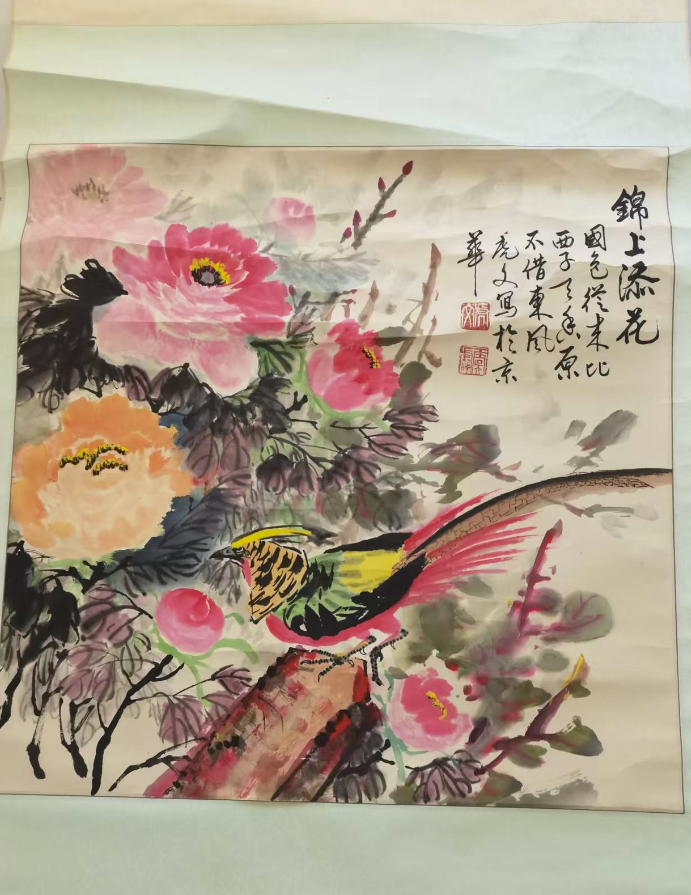 錦上添花
國色從来比
西子天香原
不借東風
虎文寫於京
華